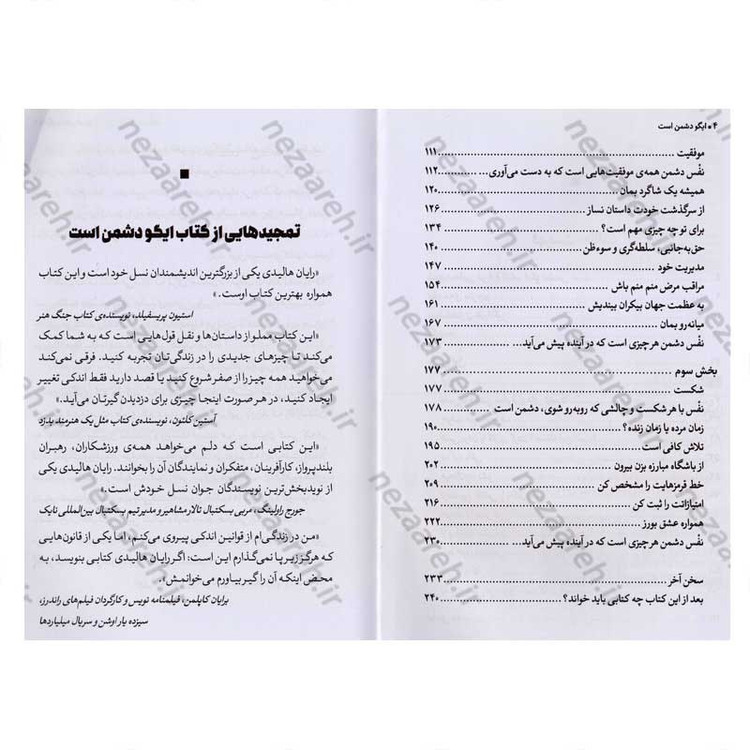 ۴ ● ایگو دشمن است
موفقیت ........ ۱۱۱
نفْس دشمن همه‌ی موفقیت‌هایی است که به دست می‌آوری ........ ۱۱۲
همیشه یک شاگرد بمان ........ ۱۲۰
از سرگذشت خودت داستان نساز ........ ۱۲۶
برای تو چه چیزی مهم است؟ ........ ۱۳۴
حق‌به‌جانبی، سلطه‌گری و سوءظن ........ ۱۴۰
مدیریت خود ........ ۱۴۷
مراقب مرض منم منم باش ........ ۱۵۴
به عظمت جهان بیکران بیندیش ........ ۱۶۱
میانه‌رو بمان ........ ۱۶۷
نفْس دشمن هر چیزی است که در آینده پیش می‌آید... ........ ۱۷۳
بخش سوم ........ ۱۷۷
شکست ........ ۱۷۷
نفْس با هر شکست و چالشی که روبه‌رو شوی، دشمن است ........ ۱۷۸
زمان مرده یا زمان زنده؟ ........ ۱۹۰
تلاش کافی است ........ ۱۹۵
از باشگاه مبارزه بزن بیرون ........ ۲۰۲
خط قرمزهایت را مشخص کن ........ ۲۰۹
امتیازاتت را ثبت کن ........ ۲۱۶
همواره عشق بورز ........ ۲۲۲
نفْس دشمن هر چیزی است که در آینده پیش می‌آید ........ ۲۳۰
سخن آخر ........ ۲۳۳
بعد از این کتاب چه کتابی باید خواند؟ ........ ۲۴۰
تمجیدهایی از کتاب ایگو دشمن است
«رایان هالیدی یکی از بزرگترین اندیشمندان نسل خود است و این کتاب
همواره بهترین کتاب اوست.»
استیون پرسفیلد، نویسنده‌ی کتاب جنگ هنر
«این کتاب مملو از داستان‌ها و نقل قول‌هایی است که به شما کمک
می‌کند تا چیزهای جدیدی را در زندگی‌تان تجربه کنید. فرقی نمی‌کند
می‌خواهید همه چیز را از صفر شروع کنید یا قصد دارید فقط اندکی تغییر
ایجاد کنید، در هر صورت اینجا چیزی برای دزدیدن گیرتان می‌آید.»
آستین کلئون، نویسنده‌ی کتاب مثل یک هنرمند بدزد
«این کتابی است که دلم می‌خواهد همه‌ی ورزشکاران، رهبران
بلندپرواز، کارآفرینان، متفکران و نمایندگان آن را بخوانند. رایان هالیدی یکی
از نویدبخش‌ترین نویسندگان جوان نسل خودش است.»
جورج راولینگ، مربی بسکتبال تالار مشاهیر و مدیر تیم بسکتبال بین‌المللی نایک
«من در زندگی‌ام از قوانین اندکی پیروی می‌کنم، اما یکی از قانون‌هایی
که هرگز زیر پا نمی‌گذارم این است: اگر رایان هالیدی کتابی بنویسد، به
محض اینکه آن را گیر بیاورم می‌خوانمش.»
برایان کاپلمن، فیلمنامه نویس و کارگردان فیلم‌های راندرز،
سیزده یار اوشن و سریال میلیاردها
nezaareh.ir